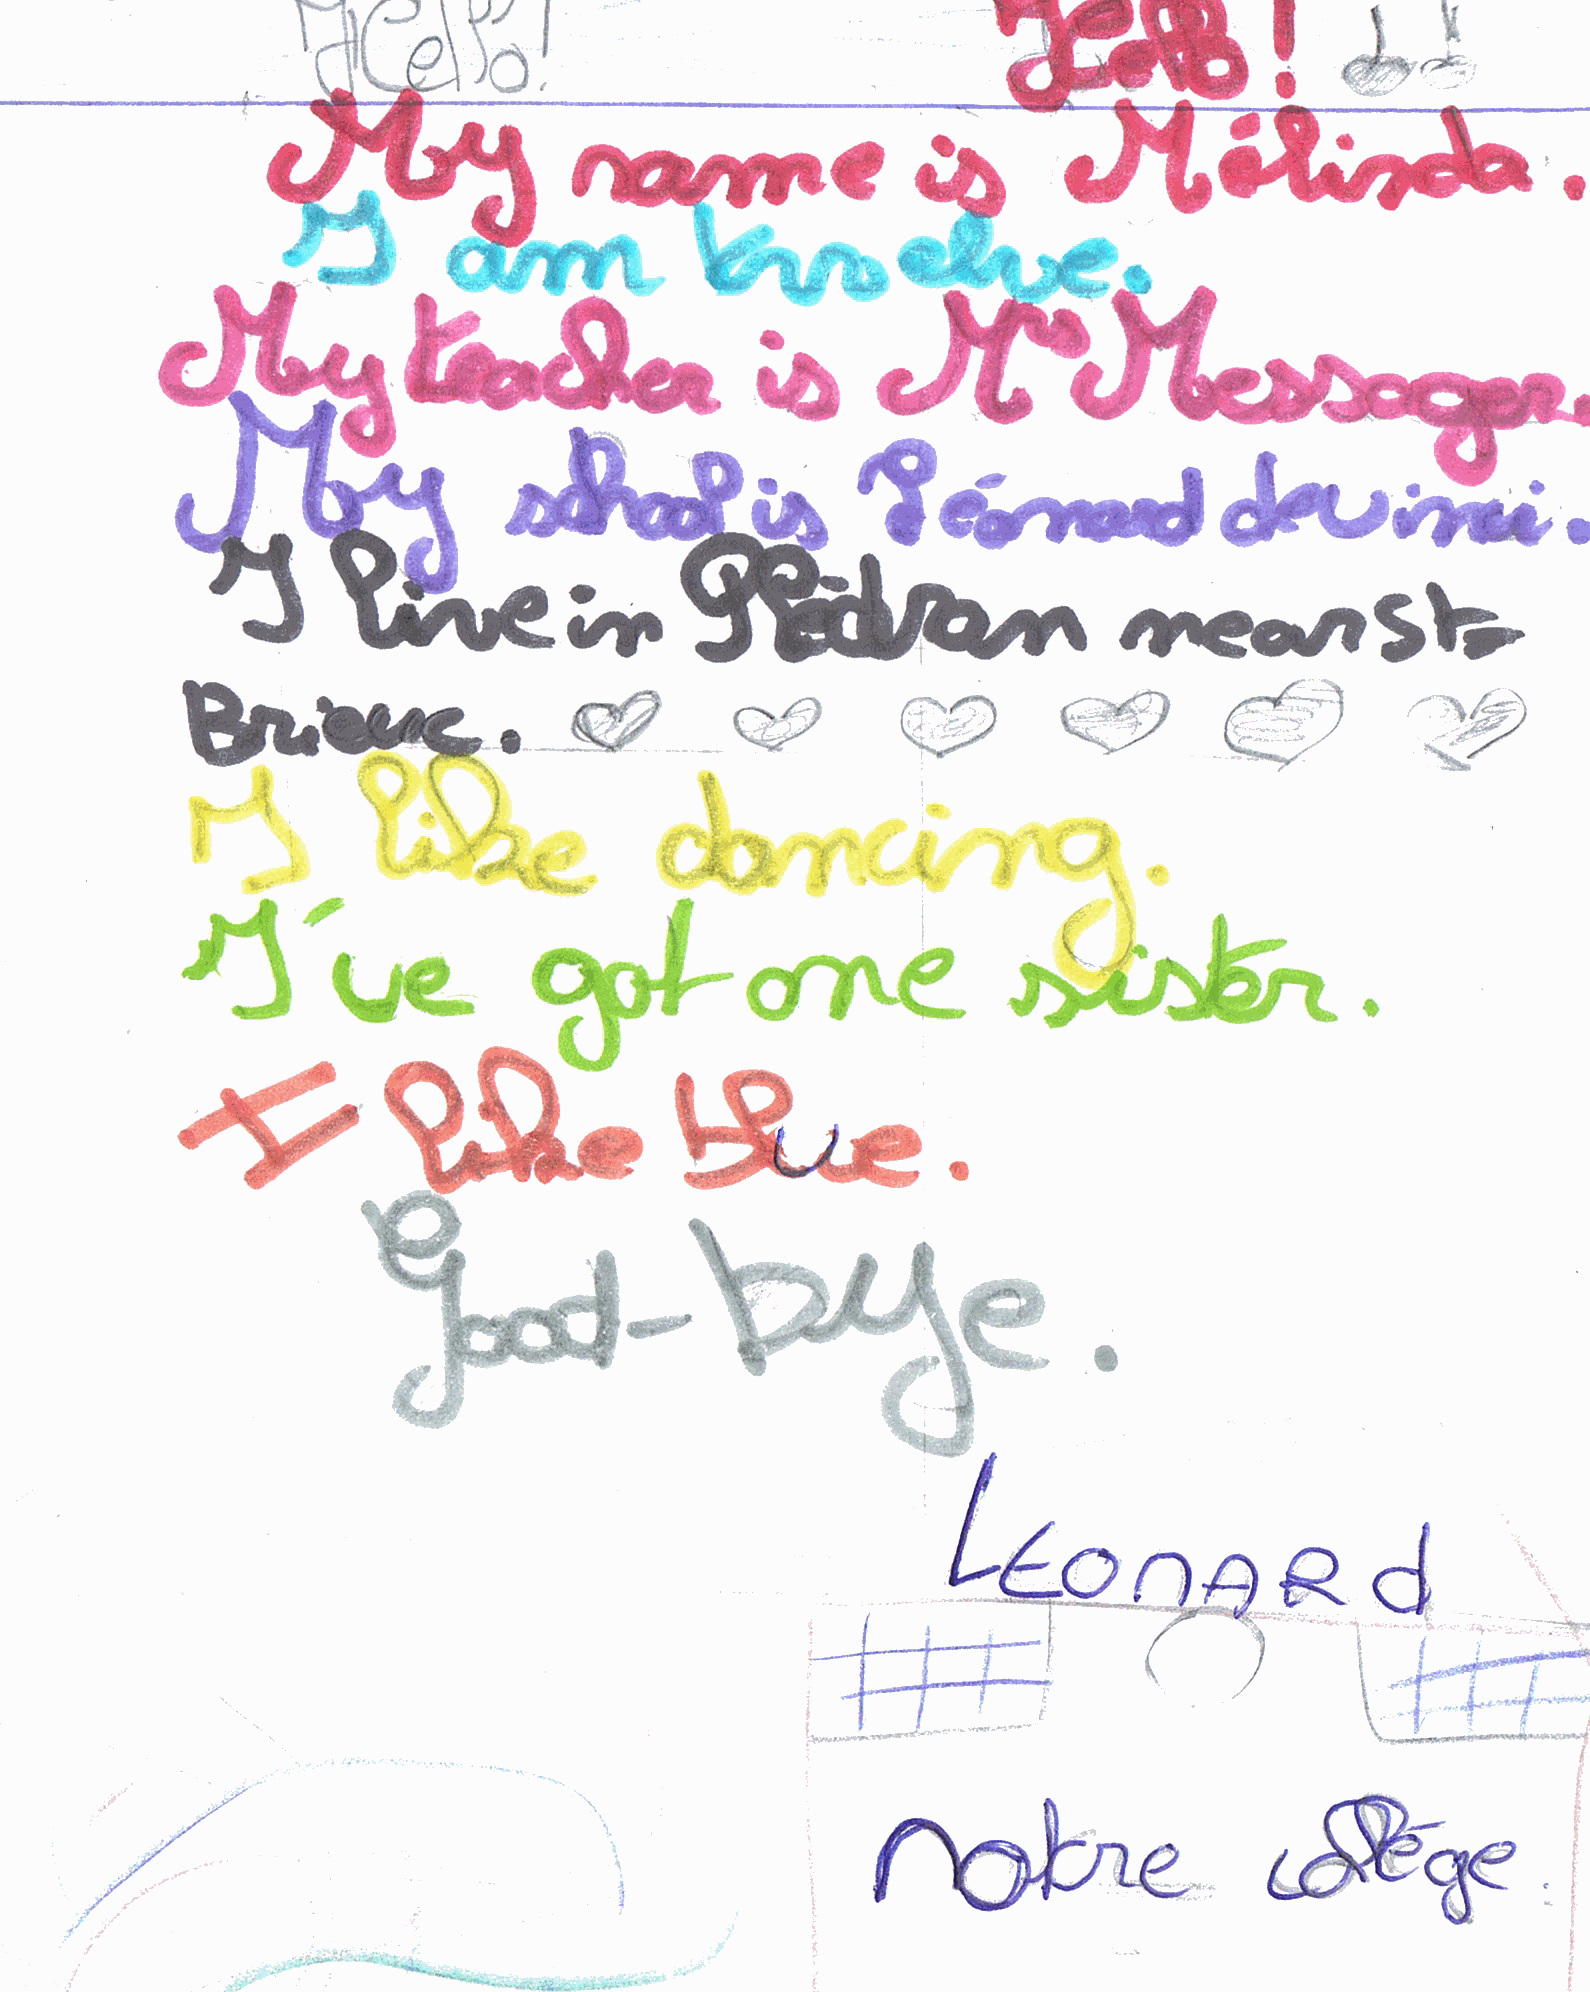 Hello! Hello!
My name is Mélinda.
I am twelve.
My teacher is Mrs Messager.
My school is Léonard de vinci.
I live in Plédran near St-
Brieuc.
I like dancing.
I've got one sister.
I like blue.
Good-bye.
LEONARd
Notre collége.